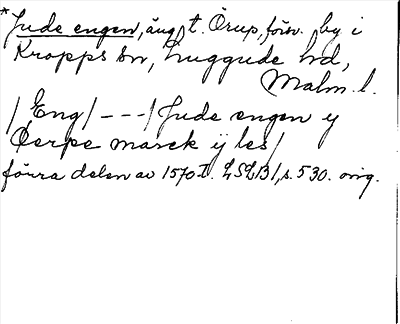 *Jude engen, äng t. Örup, försv. by i
Kropps sn, Luggude hd,
Malm. l.
/ Eng / - - - / Jude engen y
Øerpe marck ÿ les /
förra delen av 1570-t. LSLB1, s. 530. orig.